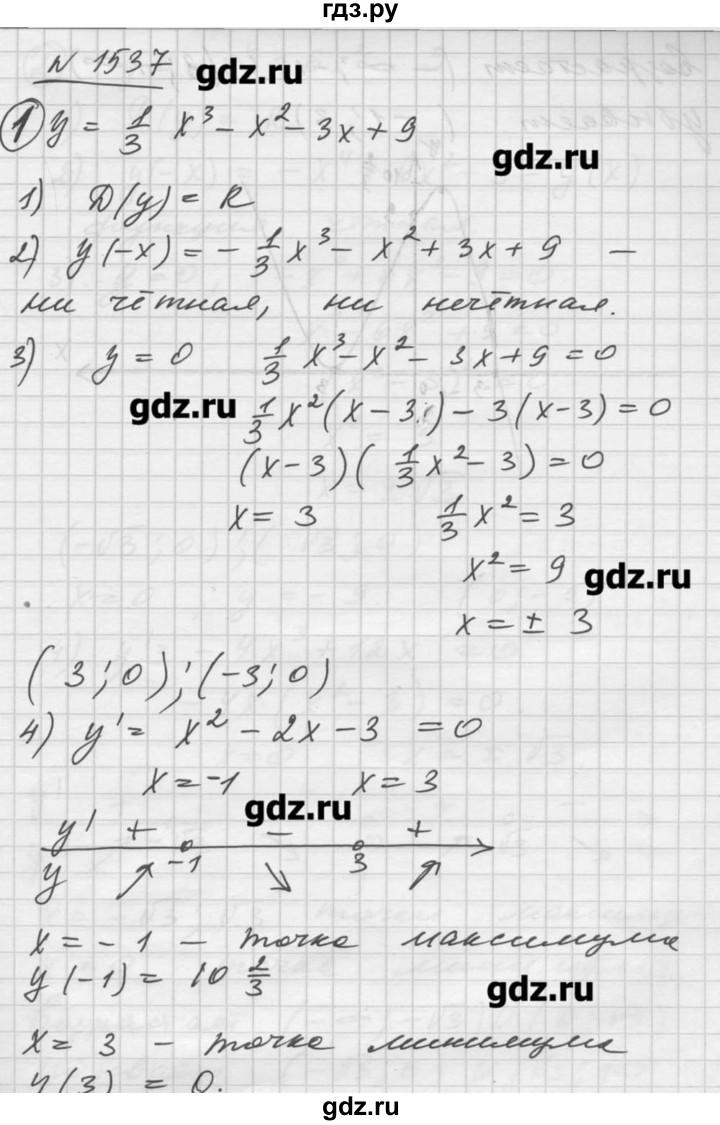 гдз.ру
N 1537
gdz.ru
① y = 1/3 x³ − x² − 3x + 9
gdz.ru
1) D(y) = R
2) y(−x) = − 1/3 x³ − x² + 3x + 9 −
ни чётная, ни нечётная.
3) y = 0 1/3 x³ − x² − 3x + 9 = 0
gdz.ru 1/3 x² (x − 3) − 3 (x − 3) = 0
(x − 3) ( 1/3 x² − 3) = 0
x = 3 1/3 x² = 3
x² = 9 gdz.ru
x = ± 3
(3; 0); (−3; 0)
4) y' = x² − 2x − 3 = 0
x = −1 x = 3
gdz.ru
y' + − +
−1 3
y ↗ ↘ ↗
x = − 1 − точка максимума
y (−1) = 10 2/3
gdz.ru
x = 3 − точка минимума
y(3) = 0.
gdz.ru